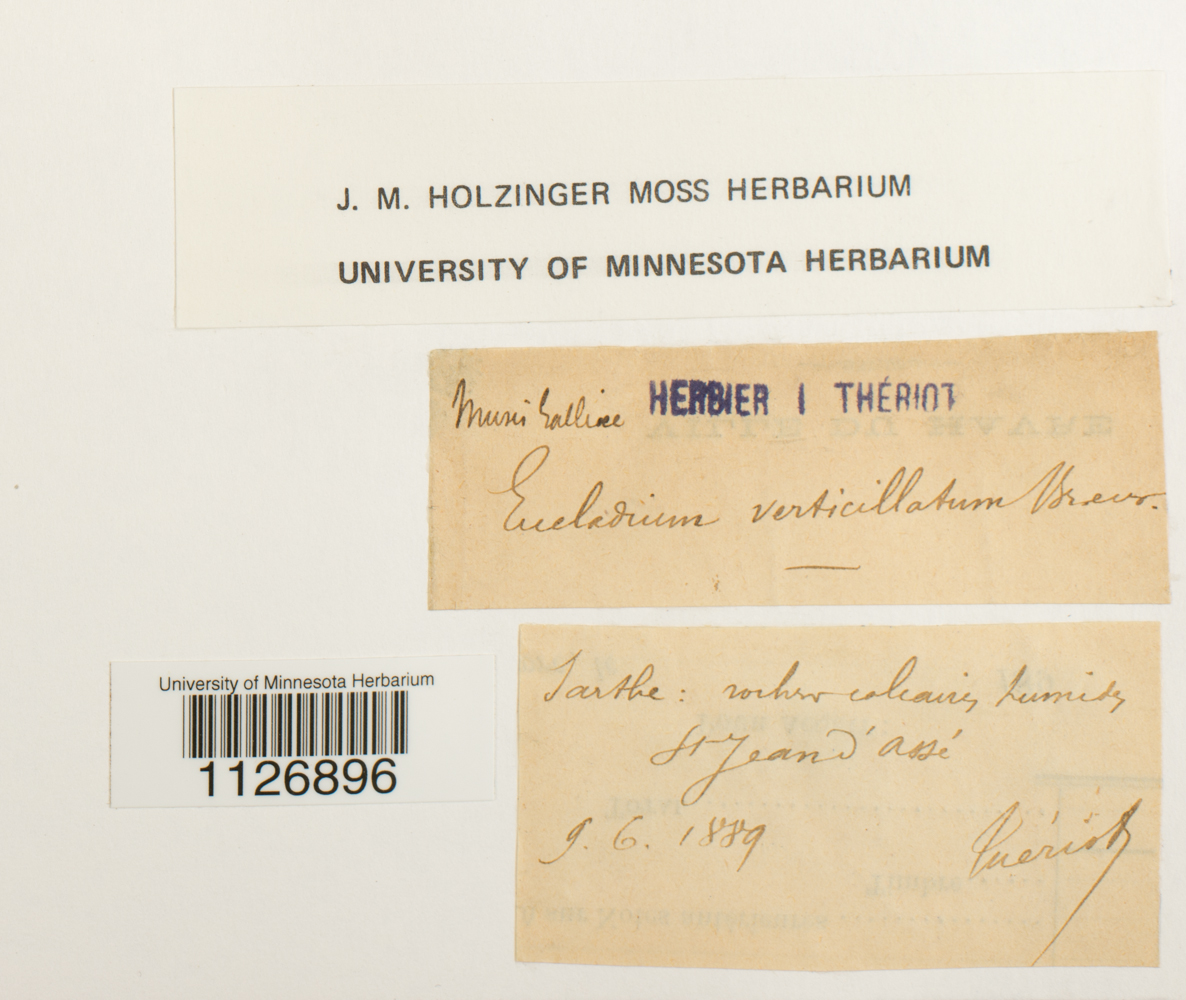 J. M. HOLZINGER MOSS HERBARIUM
UNIVERSITY OF MINNESOTA HERBARIUM
Musci Galliae HERBIER I THÉRIOT
Eucladium verticillatum
Sarthe: rochers calcaires humides
St Jean d'Assé
9. 6. 1889 Thériot
University of Minnesota Herbarium
1126896